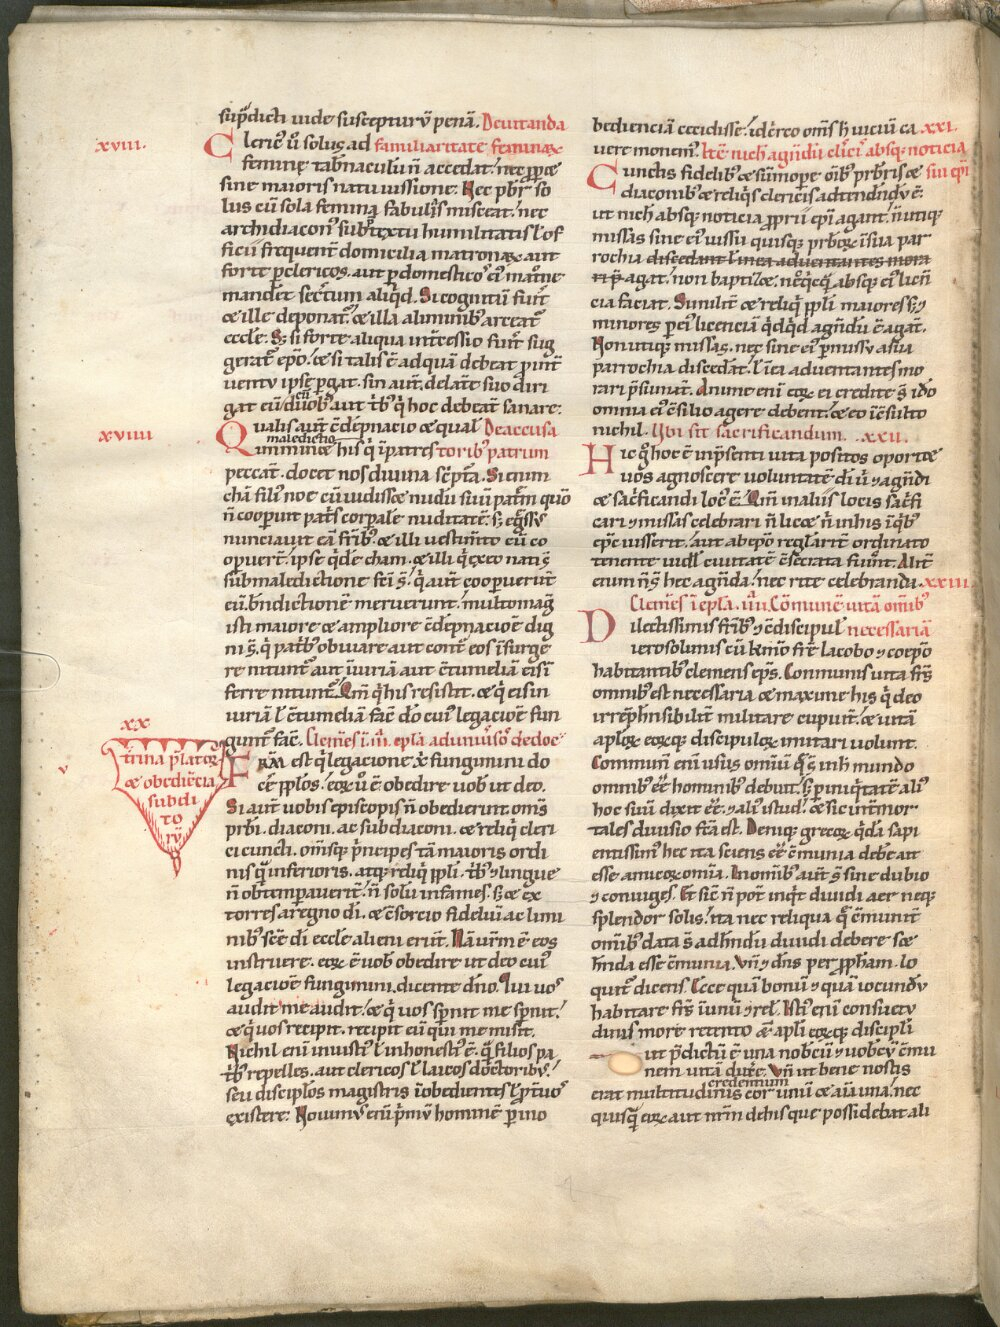 sup̄dicti uide suscepturū penā. De uitanda
xviii.
Cleric᷒ ū solus ad familiaritate feminaꝝ
feminę tab̄naculū n̄ accedat. nec ꝓꝑ&
sine maioris natu iussione. Nec pb̄r so
lus cū sola femina fabulis misceat. nec
archidiacon᷒ sub p̄textu humilitatis ł of
ficii frequent̄ domicilia matronaꝝ aut
forte ꝑ clericos. aut ꝑ domestico᷒ ei᷒ mat̄ne
mand& secr&um aliq̄d. Si cognitū fuit̄
& ille deponat᷒. & illa a liminib᷒ arceat᷒
eccłe. S; si forte aliqua int̄cessio fuit̄ sug
gerat᷒ epō. & si talis ē ad quā debeat ꝑuent̄
uentu ipse ꝑgat. sin aut̄. delat᷒ē suo diri
gat cū duob᷒ aut t̄b᷒ q̇ hoc debeat sanare.
xviiii
Qualis aut̄ c̄dēpnacio & qual De accusa
maledictio
immin& his q̇ in patres torib᷒ patrum
peccat̄. doc& nos diuina sc̄pta. Si enim
cham fili᷒ noe cū uidiss& nudū suū patrē quō
n̄ cooꝑuit pat̄s corpale nuditatē. s; eg̃ssus
nunciauit eā frīb᷒ & illi uestim̄to cū co
oꝑuer̄t. ipse q̇dē cham. & illi q̇ ex eo nati s̄
sub maledictione fc̄i s̄. q̇ aut̄ cooꝑuerūt
eū. bn̄dictionē meruerunt. multo mag᷒
isti maiore & ampliore c̄dēpnacioē dig
ni s̄. q̇ patrib᷒ obuiare aut cont̄ eos īsurge
re nitunt᷒ aut īiuriā aut c̄tumeliā eis ī
ferre nitunt᷒. Qm̄ q̇ his resistit. & q̇ eis in
iuriā ł c̄tumeliā fac̄. dō cui᷒ legacioē fun
gunt᷒ fac̄. Clem̄s ī. iii. epła ad uniu᷒so᷒ de doc
xx
t̄rina p̄latoꝝ
& obediēcia
subdi
to
rū
v
Ērm est q̇ legacione x̄ fungimini do
cēr ppłos. eoꝝ ū ē obedire uob᷒ ut deo.
Si aut̄ uobis episcopis n̄ obedierint omīs
pr̄bī. diaconi. ac subdiaconi. & reliq̇ cleri
ci cuncti. omīsq; p̄ncipes tā maioris ordi
nis q̄ inferioris. atq; reliq̇ ppłi. t̄b᷒ ⁊ lingue
n̄ obt̄emꝑauerīt. n̄ solū infames. s; & ex
torres a regno di. & c̄sorcio fideliū ac limi
nib᷒ sc̄e di eccłe alieni erūt. Nā ur̄m ē eos
instruere. eoꝝ ē uob᷒ obedire ut deo cui᷒
legacioē fungimini. dicente dn̄o. Qui uos
audit me audit. & q̇ uos spernit me spernit.
& q̇ uos recipit. recipit eū qui me misit.
Nichil eni iniusti᷒ ł inhonesti᷒ ē. q̄ filios pa
t̄b᷒ repelles. aut clericos ł laicos doctorib᷒.
seu disciplos magistris inobedientes ł ꝑtiuo᷒
existere. Nouimus eni p̄mū hominē ꝑ ino
bedienciā cecidisse. idcirco omīs h᷒ uiciū ca xxi.
uere monem᷒. Itē nich agn̄dū clēci absq; noticia
Cunctis fidelib᷒ & sūmoꝑe oīb᷒ prb̄ris & sui ep̄i
diaconib᷒ & reliq̇s clericis adtendn̄dū ē.
ut nich absq; noticia ꝓprii ep̄i agant. n̄ utiq;
missas sine ei᷒ iussu quisq; prb̄oꝝ in sua par
rochia discedant ł inea aduentantes mora
ri p̄ agat. non baptiz&. neq̇cq̄ absq; ei᷒ licēn
cia faciat. Similit̄ & reliq̇ ppłi maiores s; ⁊
minores per ei᷒ licenciā q̇dq̇d agn̄dū ē agat̄.
Non utiq; missas. neq; sine ei᷒ ꝑmissu a sua
parrochia discedat̄. ł ī ea aduentantes mo
rari p̄sumat̄. Anime eni eoꝝ ei credite s̄. idō
omnia ei᷒ c̄silio agere debent. & eo īc̄sulto
nichil. Ubi sit sacrificandum. .xxii.
Hic g᷒ hoc ē inp̄senti uita positos oport&
uos agnoscere uoluntatē di ū ⁊ agn̄di
& sac̄ficandi loc᷒ ē. Qm̄ in aliis locis sac̄fi
cari ⁊ missas celebrari n̄ lic& n̄ in his ī q̇b᷒
ep̄c iusserit. aut ab epō reglarīt᷒ ordinato
tenente uidł ciuitatē c̄secrata fuit̄. Alit̄
enim n̄ s̄ hec agn̄da. nec rite celebranda. xxiii.
Clem̄s ī epła. iiii. Cōmunē uitā omīb᷒
Dilectissimis frīb᷒ ⁊ c̄discipul᷒ necessariā
ierosolimis cū k̄mo fr̄e Iacobo ⁊ coepō
habitantib᷒ clemens ep̄s. Communis uita fr̄s
omīb᷒ est necessaria & maxime his q̇ deo
irrep̄hn̄sibilit̄ militare cupiūt. & uitā
aplōꝝ eoꝝq; discipuloꝝ imitari uolunt.
Commun᷒ eni usus omiū q̄ s̄ in h̄ mundo
omīb᷒ eē hominib᷒ debuit. s; ꝑ iniq̇tatē ali᷒
hoc suū dixit eē. ⁊ ali᷒ istud. & sic int̄ mor
tales diuisio fc̄a est. Deniq; grecoꝝ q̇dā sapi
entissim᷒ hec ita sciens eē c̄munia debe ait
esse amicoꝝ omīa. In omīb᷒ aut̄ s̄ sine dubio
⁊ coniuges. Et sic̄ n̄ pot̄ inq̇t diuidi aer neq;
splendor solis. ita nec reliqua q̄ c̄munit̄
omīb᷒ data s̄ ad hn̄dū diuidi debere s&
h̄nda esse c̄munia. Vn̄ ⁊ dn̄s per ꝓph&am. lo
quit᷒ dicens. Ecce quā bonū ⁊ quā iocundū
habitare fr̄s ī unū ⁊ rel̄. Isti᷒ eni consu&u
dinis more retento & apłi eoꝝq; discipłi
ut p̄dictū ē una nob᷒cū ⁊ uob᷒cū c̄mu
nem uitā dux̄e. Vn̄ ut bene nostis
credentium
erat multitudinis cor unū & aīa una. nec
quisq̄ eoꝝ aut nr̄m de his que possidebat ali